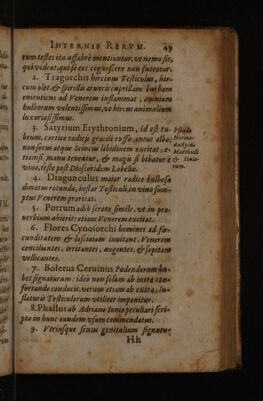 INTERNIS RERVM. 49
rum testes ita affabrè mentiuntur, ut nemo sit,
qui videat, qui se eos cognoscere non fateatur.
2. Tragorchis hircinus Testiculus, hir-
cum olet, & spirillis aruncis caprillam barbam
ementiens ad Venerem inflammat, omnium
bulborum valentissimus, ut hircus animalium
luxuriosissimus.
3. Satyrium Erythronium, id est ru-
brum, cortice radicis gracili russo, intus albo,
non solus atque Scincus libidinem excitat, e-
tiamsi manu teneatur, & magis si bibatur è
vino, teste post Dioscoridem Lobelio.
4. Dracunculus maior radice bulbosa
donatur rotunda, instar Testiculi, in vino sum-
ptus Venerem proritat.
5. Porrum adeò scroto simile, ut in pro-
uerbium abierit: etiam Venerem excitat.
6. Flores Cynosorchi homines ad fæ-
cunditatem & lasciuiam inuitant, Venerem
concinentes, irritantes, augentes, & sopitam
vellicantes.
7. Boletus Ceruinus Pudendorum ha-
bet signaturam: ideò non solùm ab intra con-
fortando conducit, verum etiam ab extra, in-
flaturis Testiculorum vtiliter imponitur.
8. Phallus ab Adriano Iunio peculiari scri-
pto in hunc eundem vsum commendatus.
9. Vtriusque sexus genitalium signatu-
Hh